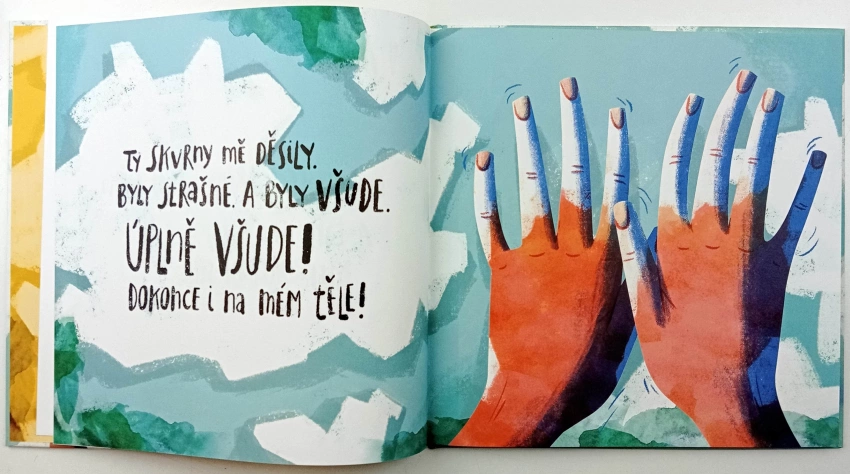 Ty skvrny mě děsily.
Byly strašné. A byly všude.
Úplně všude!
Dokonce i na mém těle!